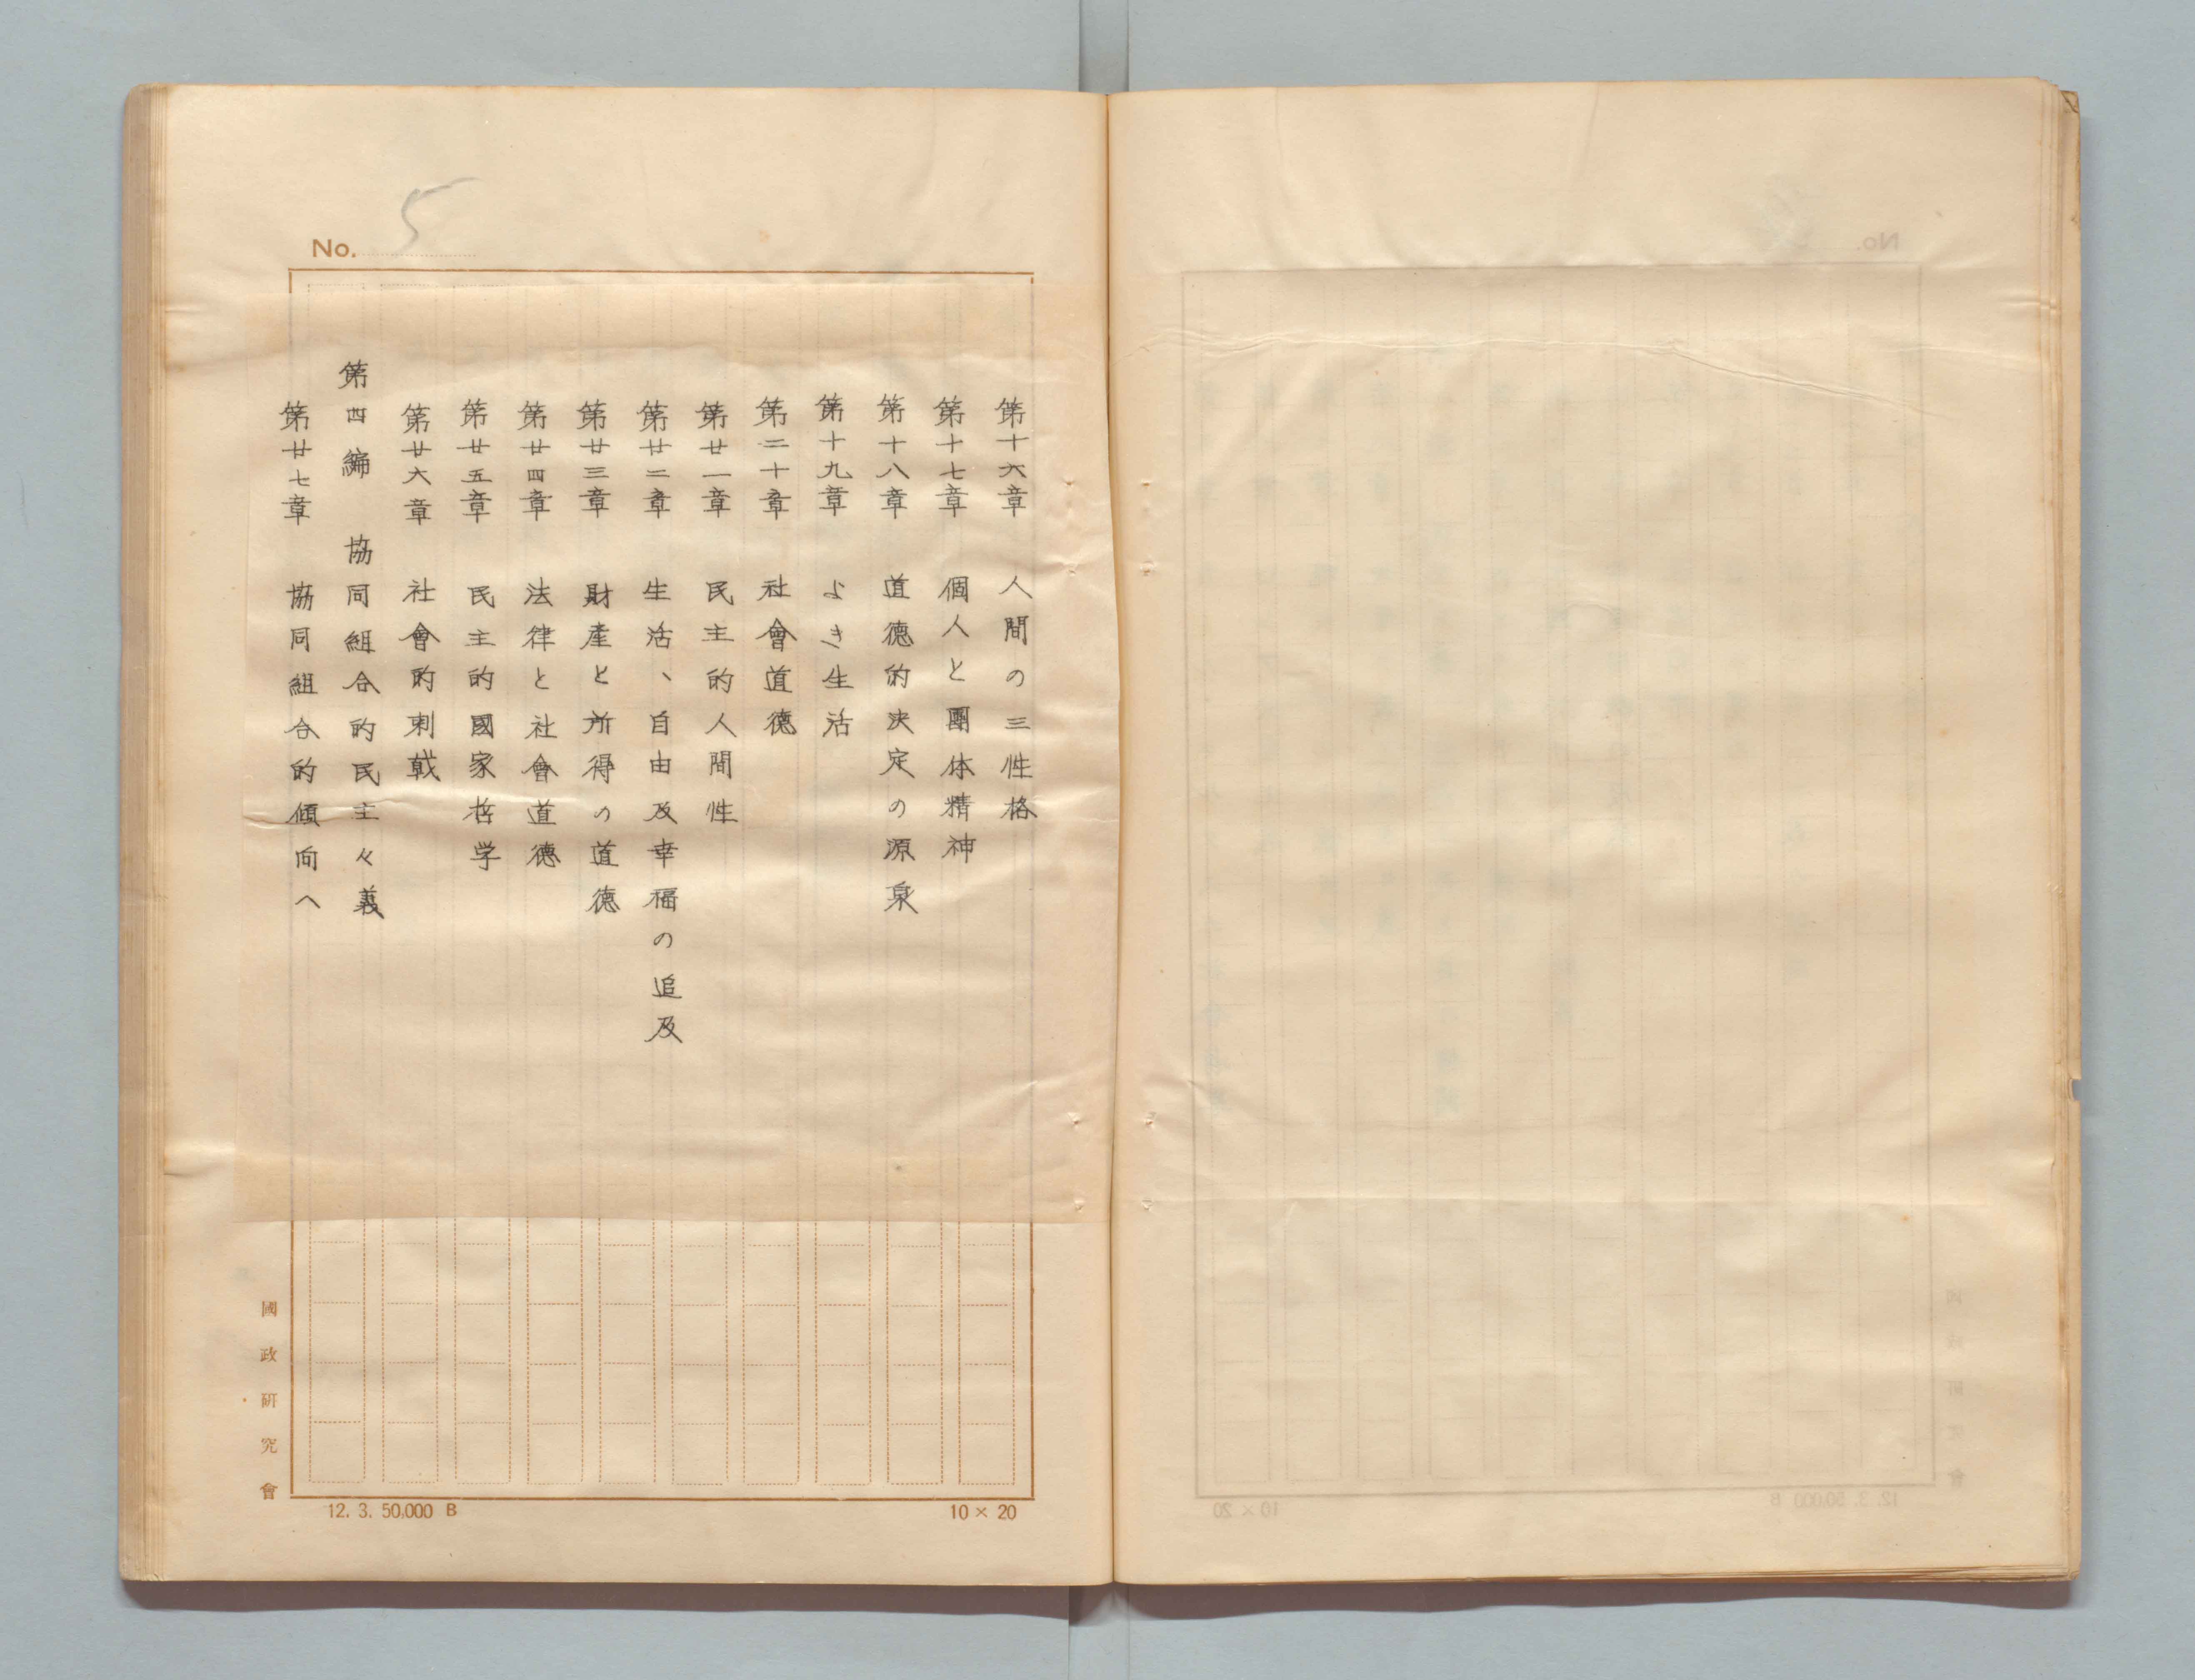 No. 5
第十六章　人間の三性格
第十七章　個人と團体精神
第十八章　道德的決定の源泉
第十九章　よき生活
第二十章　社會道德
第廿一章　民主的人間性
第廿二章　生活、自由及幸福の追及
第廿三章　財產と所得の道德
第廿四章　法律と社會道德
第廿五章　民主的國家哲学
第廿六章　社會的刺戟
第四編　協同組合的民主々義
第廿七章　協同組合的傾向へ
國政研究會
12. 3. 50,000 B
10 × 20